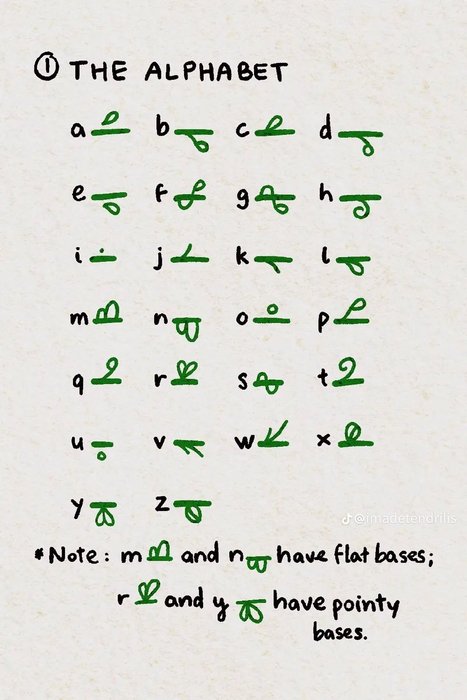 ① THE ALPHABET
a b c d
e f g h
i j k l
m n o p
q r s t
u v w x
y z
@imadetendrils
*Note: m and n have flat bases;
r and y have pointy
bases.